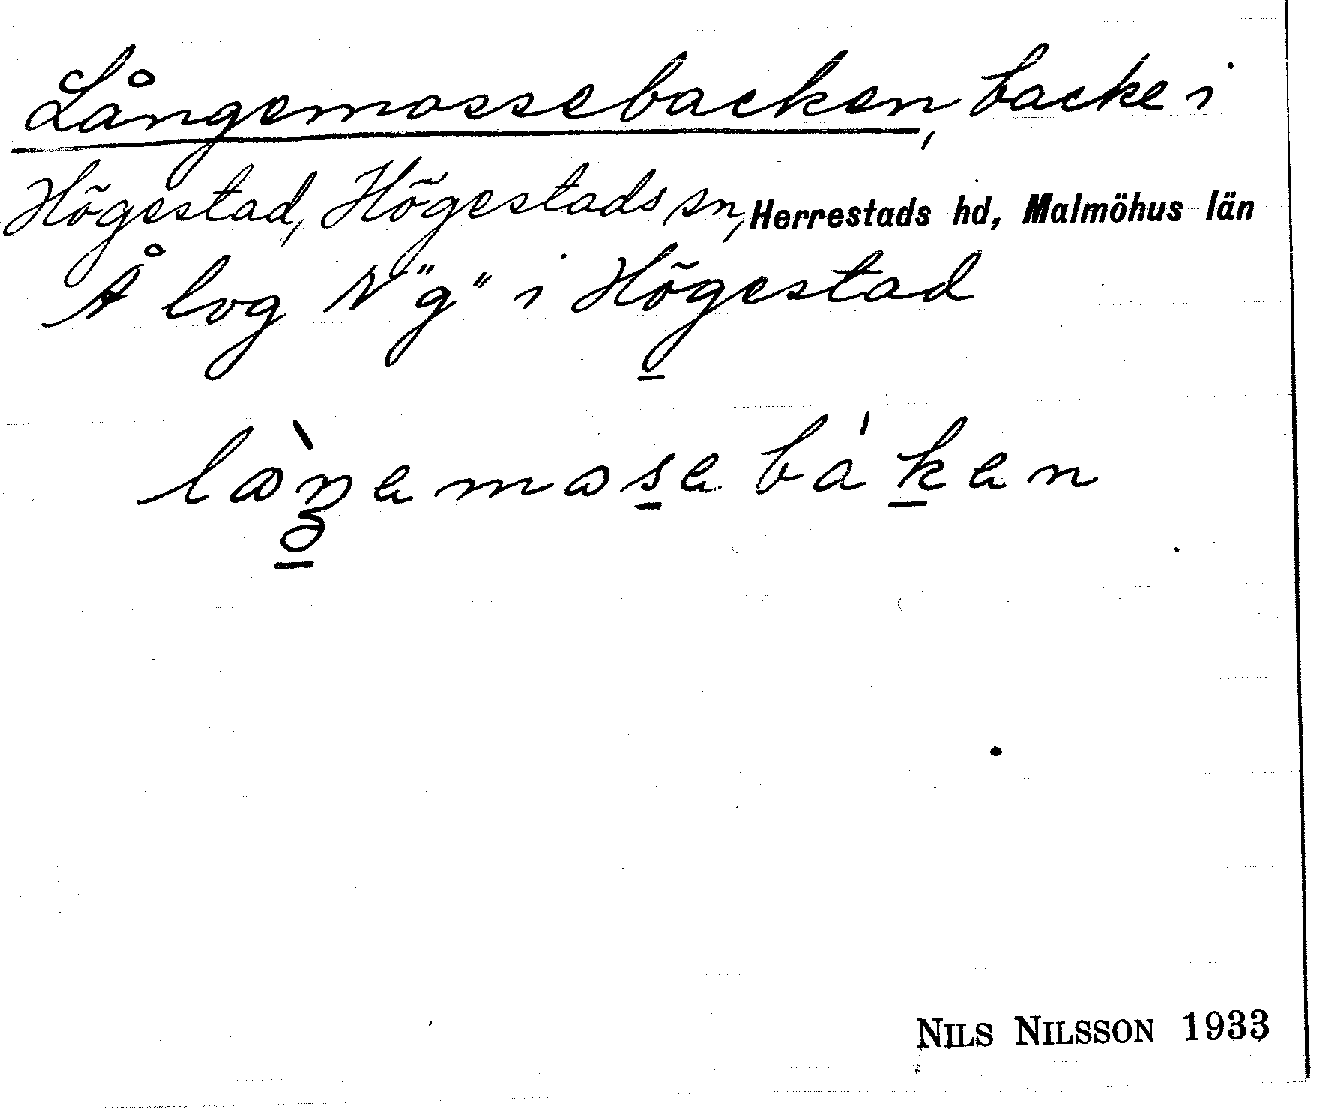 Långemossebacken, backe i
Högestad, Högestads sn, Herrestads hd, Malmöhus län
Å log N "g" i Högestad
NILS NILSSON 1933